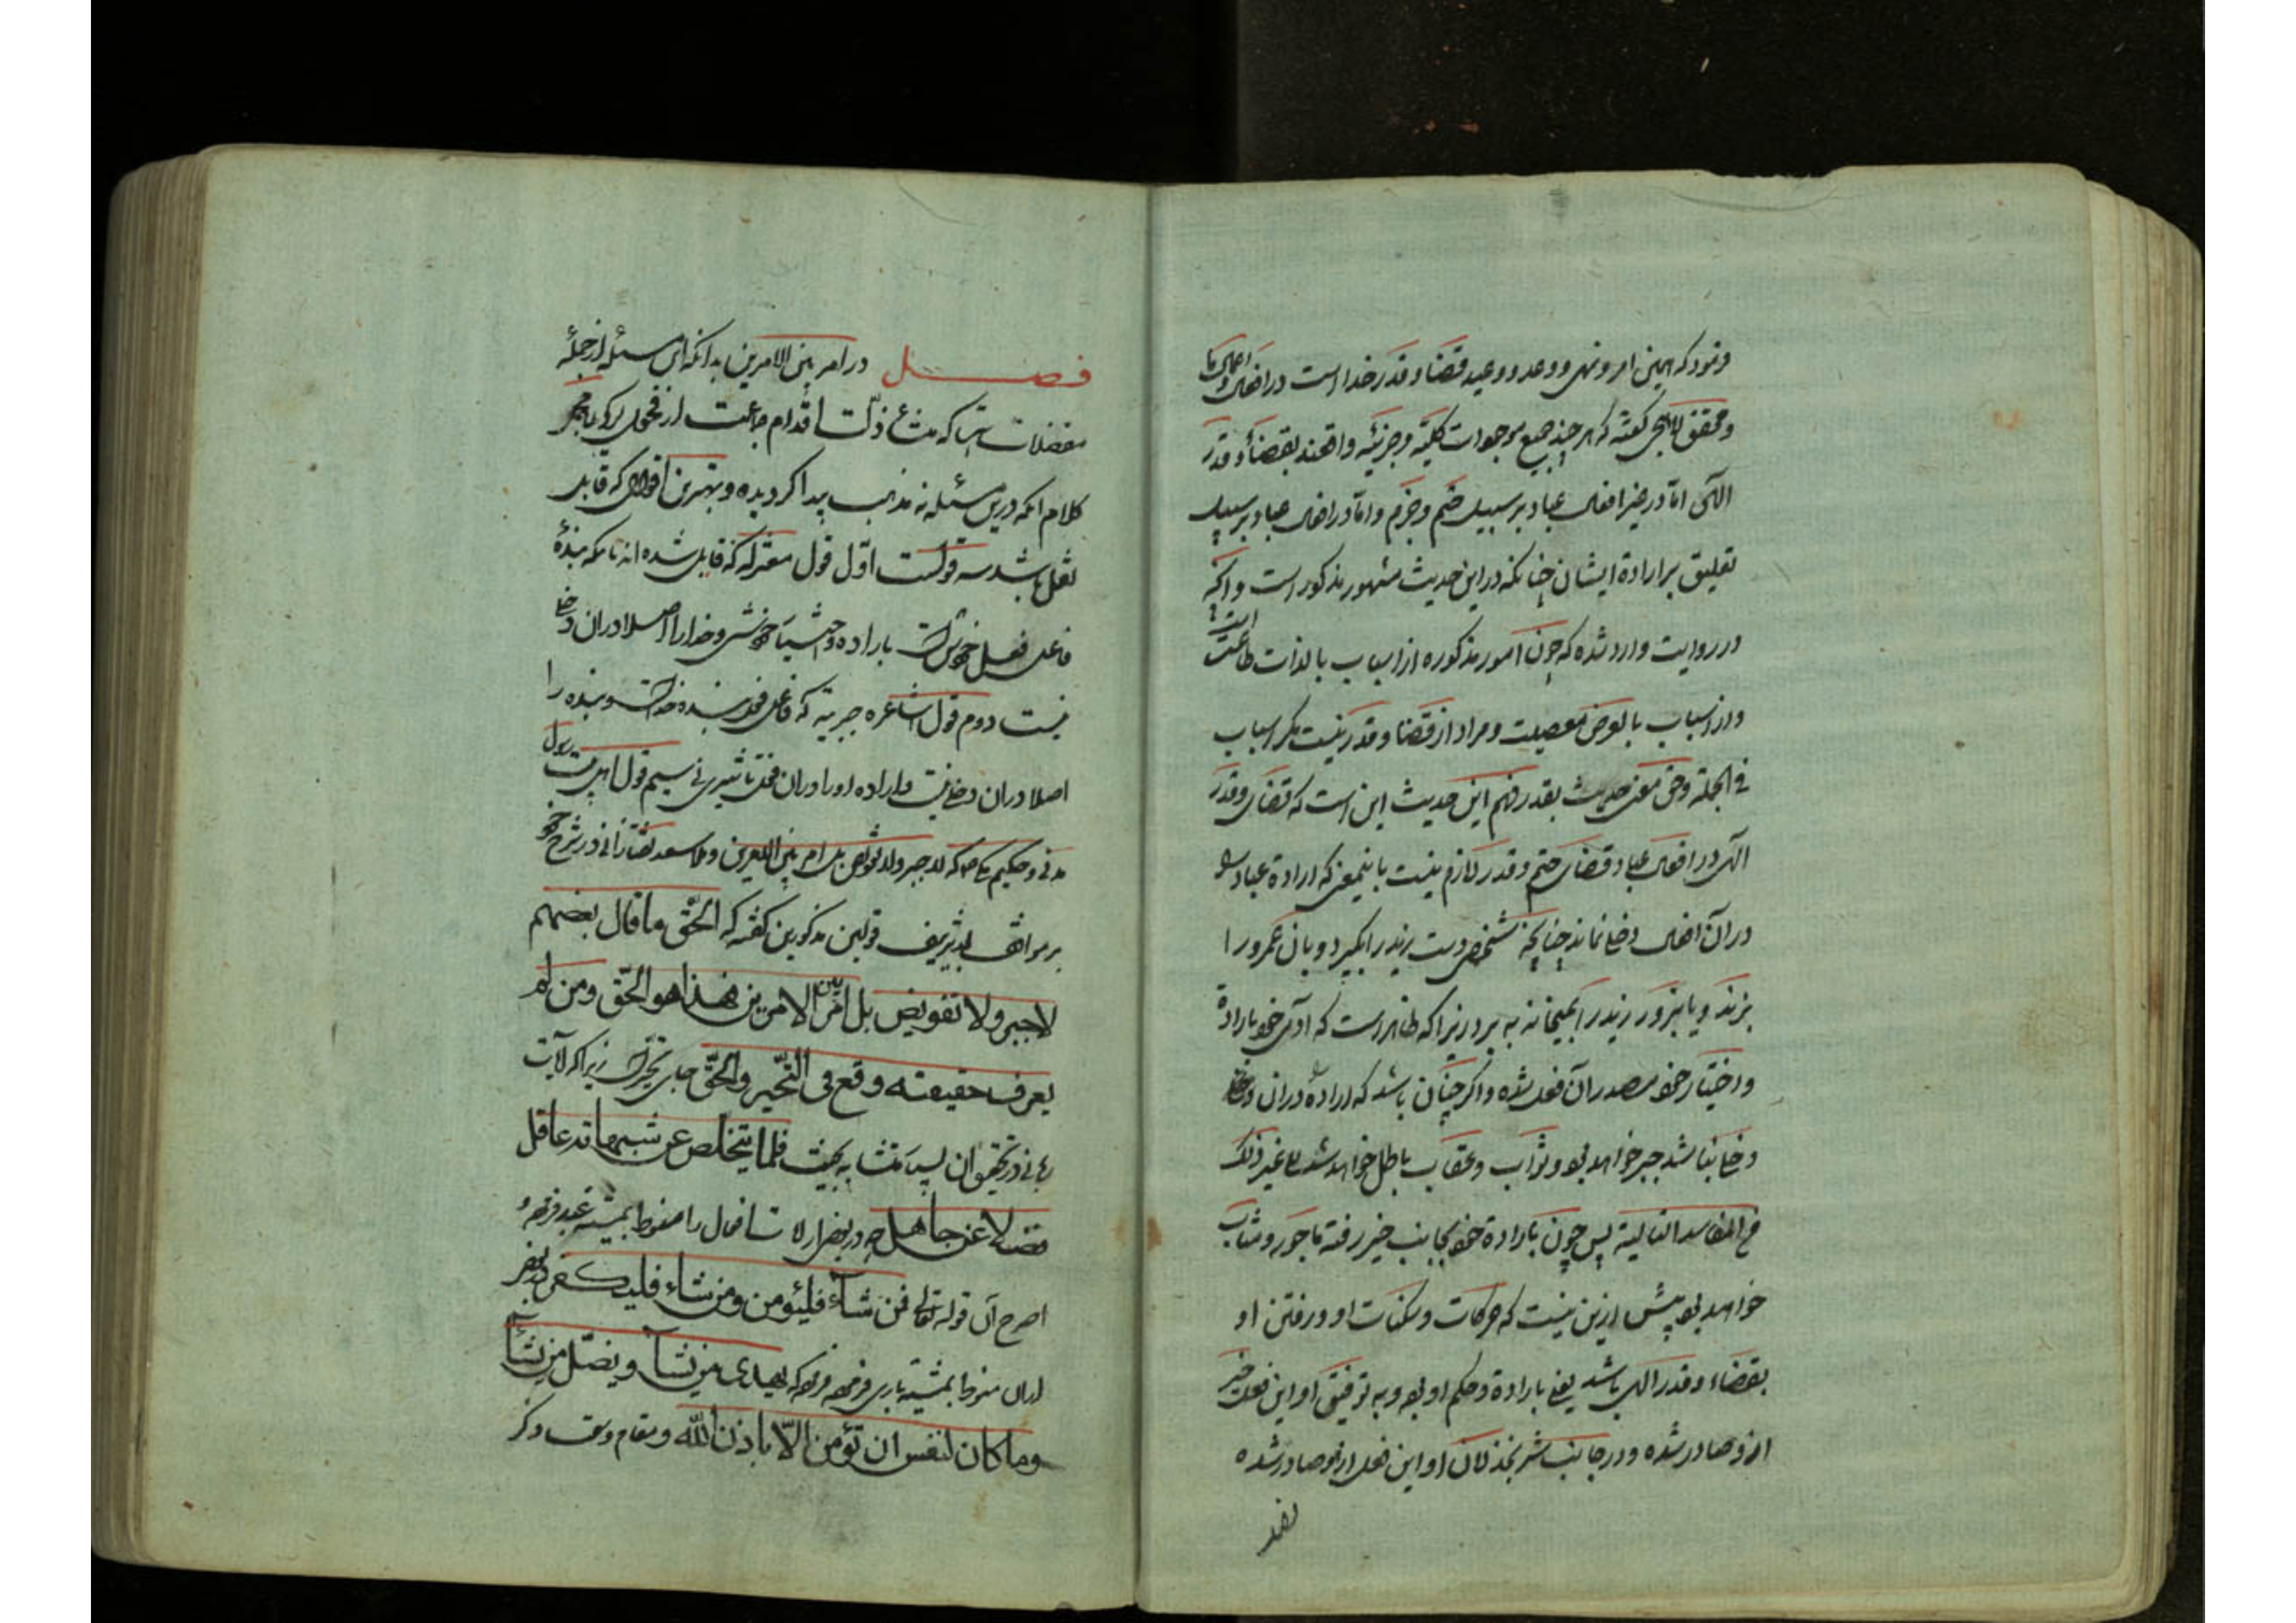 وفرمود که همین امر و نهی و وعد و وعید قضا و قدر خدا است در افعال و اعمال ما
و محقق لاهیجی گفته که هر چند جمیع موجودات کلیّه و جزئیّه واقعند بقضاء و قدر
الٓهی امّا در غیر افعال عباد بر سبیل حتم و جزم و امّا در افعال عباد بر سبیل
تعلیق بر اراده ایشان چنانکه در این حدیث مشهور مذکور است و آنچه
در روایت وارد شده که چون امور مذکوره از اسباب بالذات طاعت است
و از اسباب بالعرض معصیت و مراد از قضا و قدر نیست مگر اسباب
فی الجمله و حق معنی حدیث بقدر فهم این حدیث این است که قضای و قدر
الٓهی در افعال عباد قضای حتم و قدر لازم نیست باینمعنی که اراده عباد را
در آن افعال دخلی نماند چنانچه شخصی دست زید را بگیرد و بان عمرو را
بزند و یا بزور زید را بمیخانه به برد زیرا که ظاهر است که آدمی خود باراده
و اختیار خود مصدر آن فعل شده و اگر چنان باشد که اراده او را دران دخلی
دخلی نباشد جبر خواهد بود و ثواب و عقاب باطل خواهد شد الی غیر ذلک
من المفاسد التالیة پس چون باراده خود بجانب خیر رفته ماجور و مثاب
خواهد بود بیش ازین نیست که حرکات و سکنات او و رفتن او
بقضاء و قدر الهی باشد یعنی باراده و حکم او بود و به توفیق او این فعل خیر
ازو صادر شده و در جانب شر بخذلان او این فعل ازو صادر شده
فصل در امر بین الامرین بدانکه این مسئله از جمله
معضلات است که منشأ ذلّت اقدام جماعت از فحول
کلام انکه درین مسئله نه مذهب پیدا گردیده و بهترین اقوال که قابل
نقل باشد سه قولست اوّل قول معتزله که قابل شده اند بانکه بنده
فاعل فعل خویش است باراده و مشیّت خویش و خدا را اصلا دران دخلی
نیست دوم قول اشاعره جبریّه که فاعل فعل بنده خداست و بنده را
اصلا دران دخلی نیست و اراده او را دران فعل تاثیری نی سیم قول اهل بیت رسول
مدنی و حکیم که لا جبر و لا تفویض بل امر بین الامرین و ملا سعد تفتازانی در شرح خود
بر مواقف قولین مذکورین گفته که الحق ما قال بعضهم
لا جبر و لا تفویض بل امر بین الامرین فهذا هو الحقّ ومن لم
یعرف حقیقته وقع فی التّحیر والحقّ جای تحیّر است زیرا که آیات
فلما یتخلص عن شبهها قد عاقل
فضلا عن جاهل چه در بعضی ازان افعال را منوط بمشیّت عبد فرموده
اصرح آن قوله تعالی فمن شآء فلیؤمن ومن شاء فلیکفر و در بعضی
ازان منوط بمشیّت باری فرموده که یهدی من یشآء و یضلّ من یشآء
وما کان لنفس ان تؤمن الّا باذن اللّه و مقام دیگر